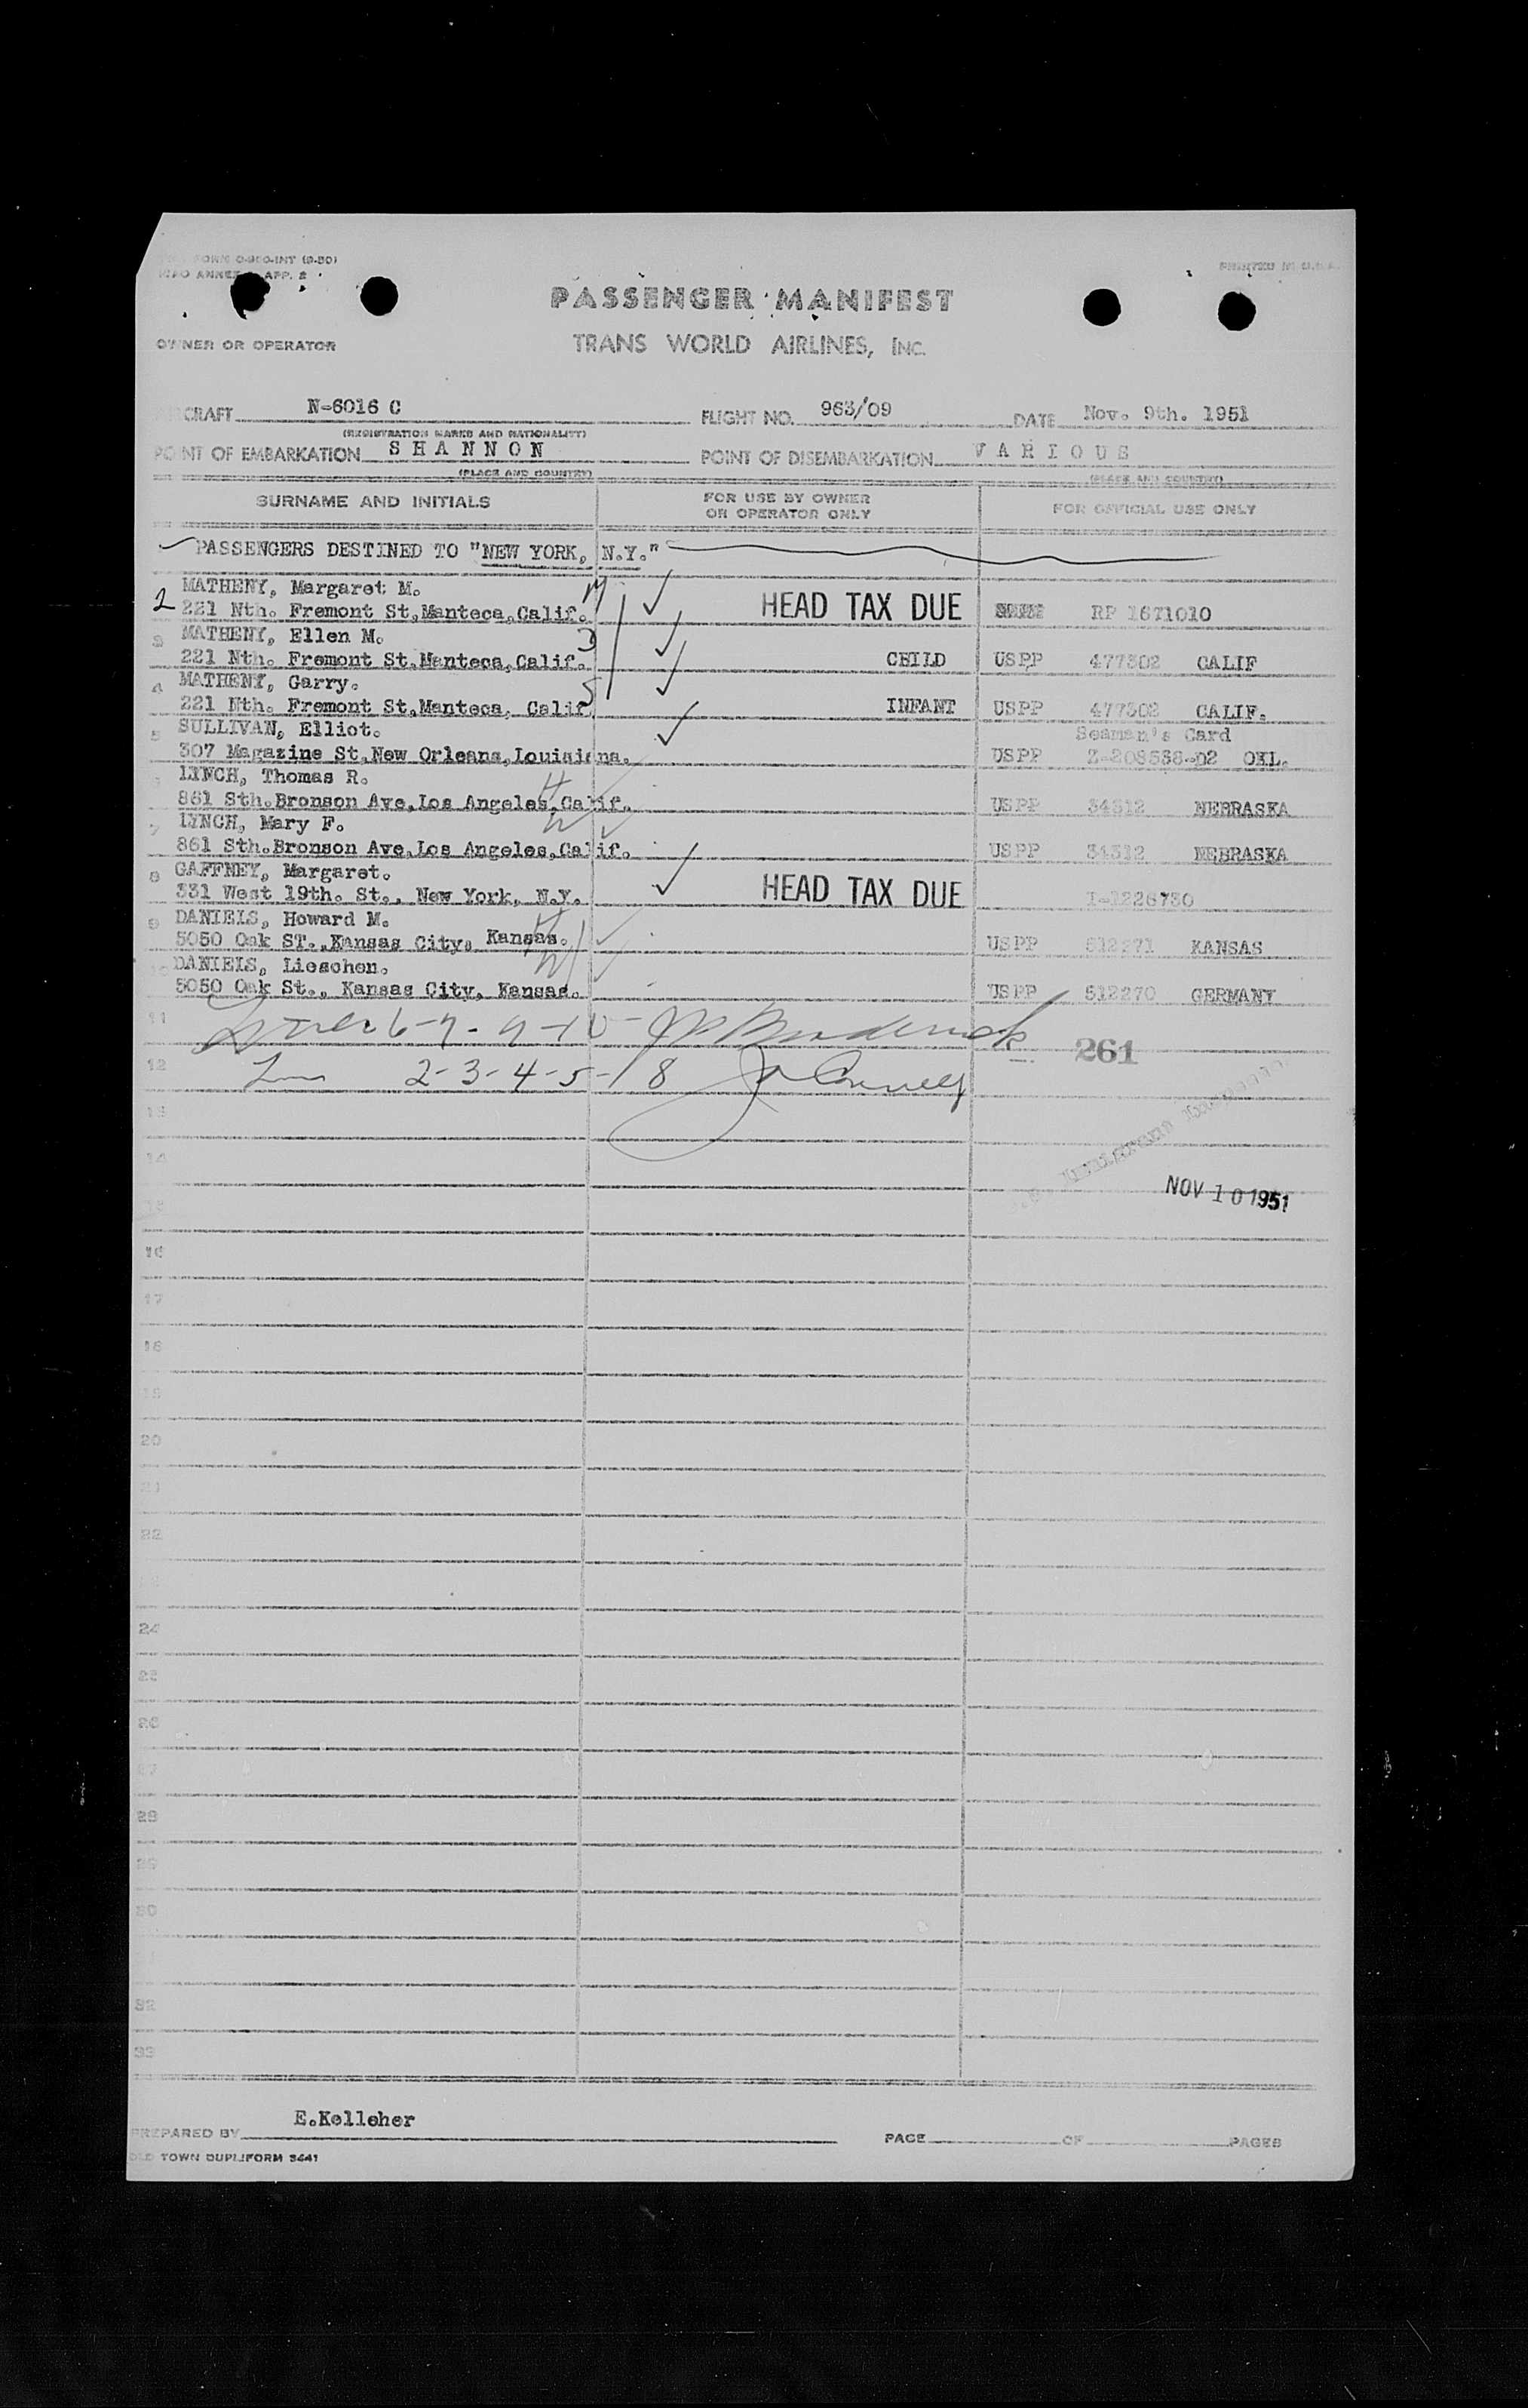 FORM O-800-INT (9-50)
ICAO ANNEX 9 APP. 2
PRINTED IN U.S.A.
PASSENGER MANIFEST
OWNER OR OPERATOR TRANS WORLD AIRLINES, INC.
CRAFT N-6016 C FLIGHT NO. 963/09 DATE Nov. 9th. 1951
(REGISTRATION MARKS AND NATIONALITY)
POINT OF EMBARKATION S H A N N O N POINT OF DISEMBARKATION V A R I O U S
(PLACE AND COUNTRY) (PLACE AND COUNTRY)
SURNAME AND INITIALS FOR USE BY OWNER OR OPERATOR ONLY FOR OFFICIAL USE ONLY
PASSENGERS DESTINED TO "NEW YORK, N.Y."
MATHENY, Margaret M. M
2 221 Nth. Fremont St,Manteca,Calif. HEAD TAX DUE RP 1671010
3 MATHENY, Ellen M. D
221 Nth. Fremont St,Manteca,Calif. CHILD USPP 477302 CALIF
4 MATHENY, Garry. S
221 Nth. Fremont St,Manteca, Calif. INFANT USPP 477302 CALIF.
5 SULLIVAN, Elliot. Seaman's Card
307 Magazine St,New Orleans,Louisiana. USPP Z-208538-D2 OKL.
LYNCH, Thomas R. H
861 Sth.Bronson Ave,Los Angeles,Calif. USPP 34312 NEBRASKA
7 LYNCH, Mary F. W
861 Sth.Bronson Ave,Los Angeles,Calif. USPP 34312 NEBRASKA
8 GAFFNEY, Margaret.
331 West 19th. St., New York, N.Y. HEAD TAX DUE I-1226730
9 DANIELS, Howard M. H
5050 Oak ST.,Kansas City, Kansas. W USPP 512271 KANSAS
10 DANIELS, Lieschen.
5050 Oak St., Kansas City, Kansas. USPP 512270 GERMANY
11 Lines 6-7-9-10- 261
12 2-3-4-5-8
13
14
NOV 10 1951
15
16
17
18
19
20
21
22
24
25
26
27
28
29
30
32
33
PREPARED BY E.Kelleher PAGE OF PAGES
OLD TOWN DUPLIFORM 3441